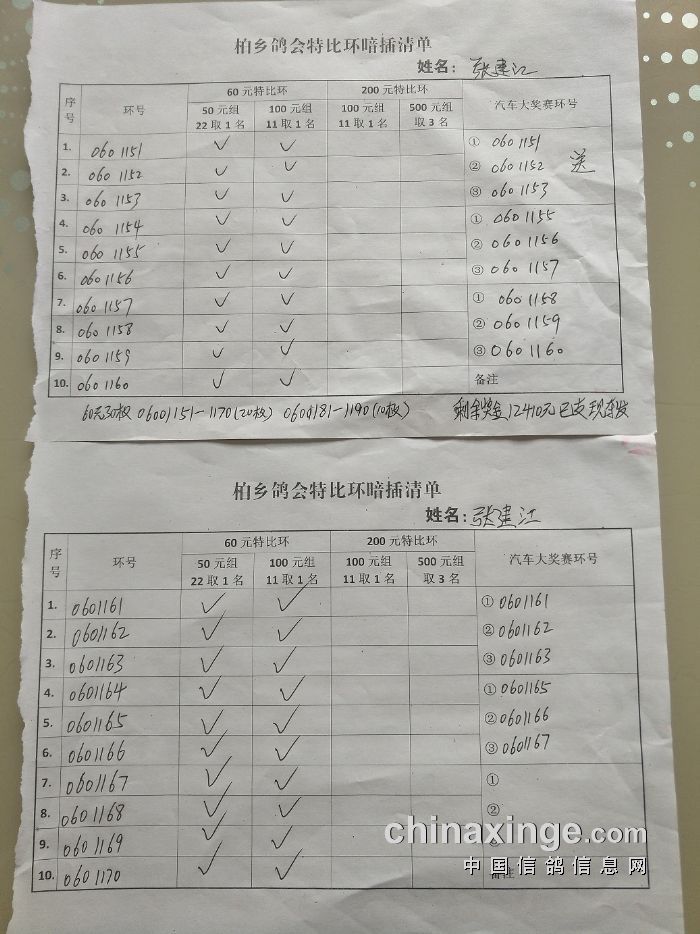 柏乡鸽会特比环暗插清单
姓名：张建江
序号 环号 60元特比环 200元特比环 汽车大奖赛环号
50元组 22取1名 100元组 11取1名 100元组 11取1名 500元组 取3名
1. 0601151 ✓ ✓ ① 0601151
2. 0601152 ✓ ✓ ② 0601152 送
3. 0601153 ✓ ✓ ③ 0601153
4. 0601154 ✓ ✓ ① 0601155
5. 0601155 ✓ ✓ ② 0601156
6. 0601156 ✓ ✓ ③ 0601157
7. 0601157 ✓ ✓ ① 0601158
8. 0601158 ✓ ✓ ② 0601159
9. 0601159 ✓ ✓ ③ 0601160
10. 0601160 ✓ ✓ 备注
60元30枚 06001151-1170(20枚) 1190(10枚) 剩余奖金12410元已支现
柏乡鸽会特比环暗插清单
姓名：张建江
序号 环号 60元特比环 200元特比环 汽车大奖赛环号
50元组 22取1名 100元组 11取1名 100元组 11取1名 500元组 取3名
1. 0601161 ✓ ✓ ① 0601161
2. 0601162 ✓ ✓ ② 0601162
3. 0601163 ✓ ✓ ③ 0601163
4. 0601164 ✓ ✓ ① 0601165
5. 0601165 ✓ ✓ ② 0601166
6. 0601166 ✓ ✓ ③ 0601167
7. 0601167 ✓ ✓ ①
8. 0601168 ✓ ✓ ②
9. 0601169 ✓ ✓
10. 0601170 ✓ ✓ 备注
chinaxinge.com
中国信鸽信息网